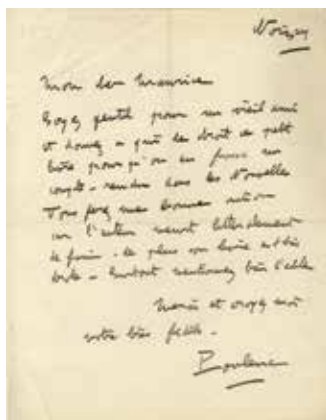 Noizay
mon bon Maurice
Soyez gentil pour un vieil ami
et donnez à qui de droit ce petit
livre pour qu'on en fasse un
compte-rendu dans les Nouvelles
Vous ferez une bonne action
car l'auteur meurt littéralement
de faim. De plus son livre est très
. Surtout mentionnez bien
Merci et croyez moi
votre bien fidèle.
Poulenc